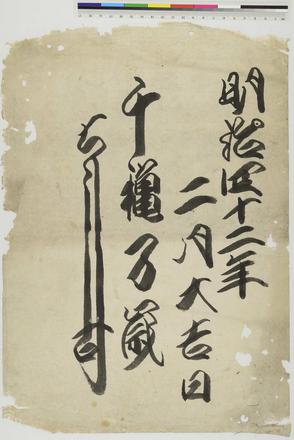 明治四十二年
二月大吉日
千穐万歳